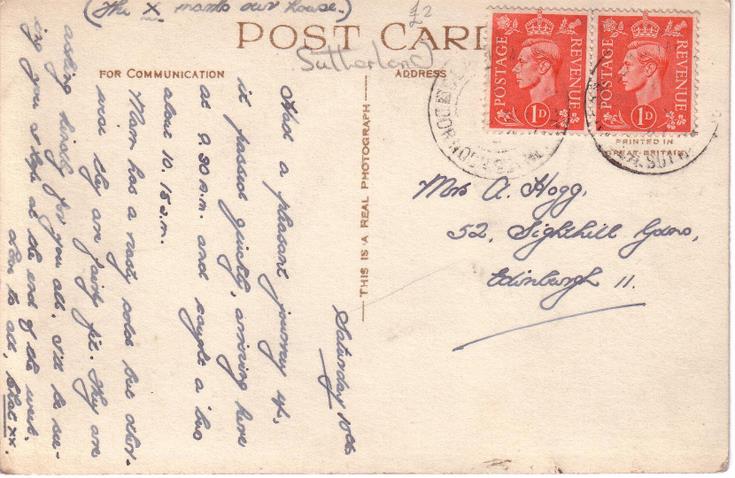 (The X marks our house.)
£2
POST CARD
Sutherland
FOR COMMUNICATION
ADDRESS
THIS IS A REAL PHOTOGRAPH
POSTAGE REVENUE
1D
POSTAGE REVENUE
1D
PRINTED IN
GREAT BRITAIN
Mrs A. Hogg,
52, Sighthill Gdns,
Edinburgh 11.
Saturday 10th
Had a pleasant journey &,
it passed quickly, arriving here
at 9.30 a.m. and caught a bus
about 10.15 a.m.
Mum has a nasty cold but other-
wise they are fairly fit. They are
asking kindly for you all. I'll be see-
ing you at the end of the week.
Love to all, xx.